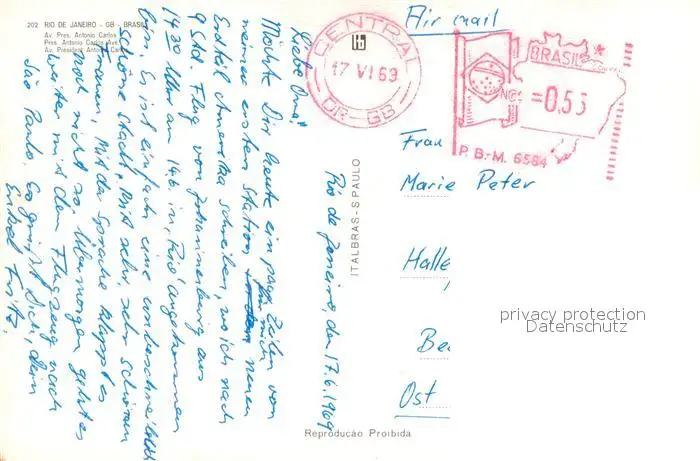 202 RIO DE JANEIRO - GB - BRASIL
Av. Pres. Antonio Carlos
Pres. Antonio Carlos Ave.
Av. Président Antonio Carlos
Rio de Janeiro, den 17.6.1969
Liebe Oma!
Möchte Dir heute ein paar Zeilen von
meiner ersten Station für mich neuen
Erdteil Amerika schreiben, wo ich nach
9 Std. Flug von Johannesburg aus
14.30 Uhr am 14.6. in Rio angekommen
bin. Es ist einfach eine unbeschreiblich
schöne Stadt, mit sehr, sehr schönen
Frauen. Mit der Sprache klappt es
noch nicht so. Übermorgen geht es
weiter mit dem Flugzeug nach
São Paulo. Es grüßt Dich, dein
Enkel Fritz.
ITALBRAS - S PAULO
Reprodução Proibida
CENTRAL
17 VI 69
DR-GB
BRASIL
=0,55
P.B.-M. 6564
Air mail
Frau
Marie Peter
Halle
Be
Ost
privacy protection
Datenschutz